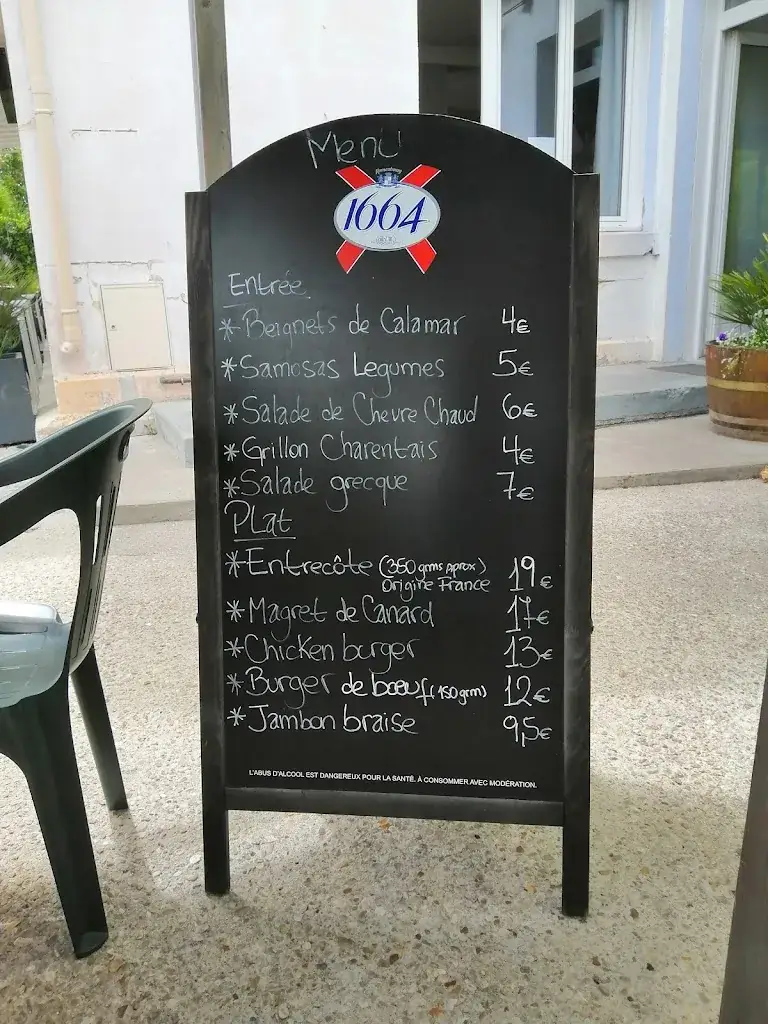 Menu
1664
Entrée
*Beignets de Calamar 4€
*Samosas Legumes 5€
*Salade de Chevre Chaud 6€
*Grillon Charentais 4€
*Salade grecque 7€
Plat
*Entrecôte (350 grms Aprox) 19€
Origine France
*Magret de Canard 17€
*Chicken burger 13€
*Burger de bœuf (150grm) 12€
*Jambon braise 9,5€
L'ABUS D'ALCOOL EST DANGEREUX POUR LA SANTÉ. À CONSOMMER AVEC MODÉRATION.